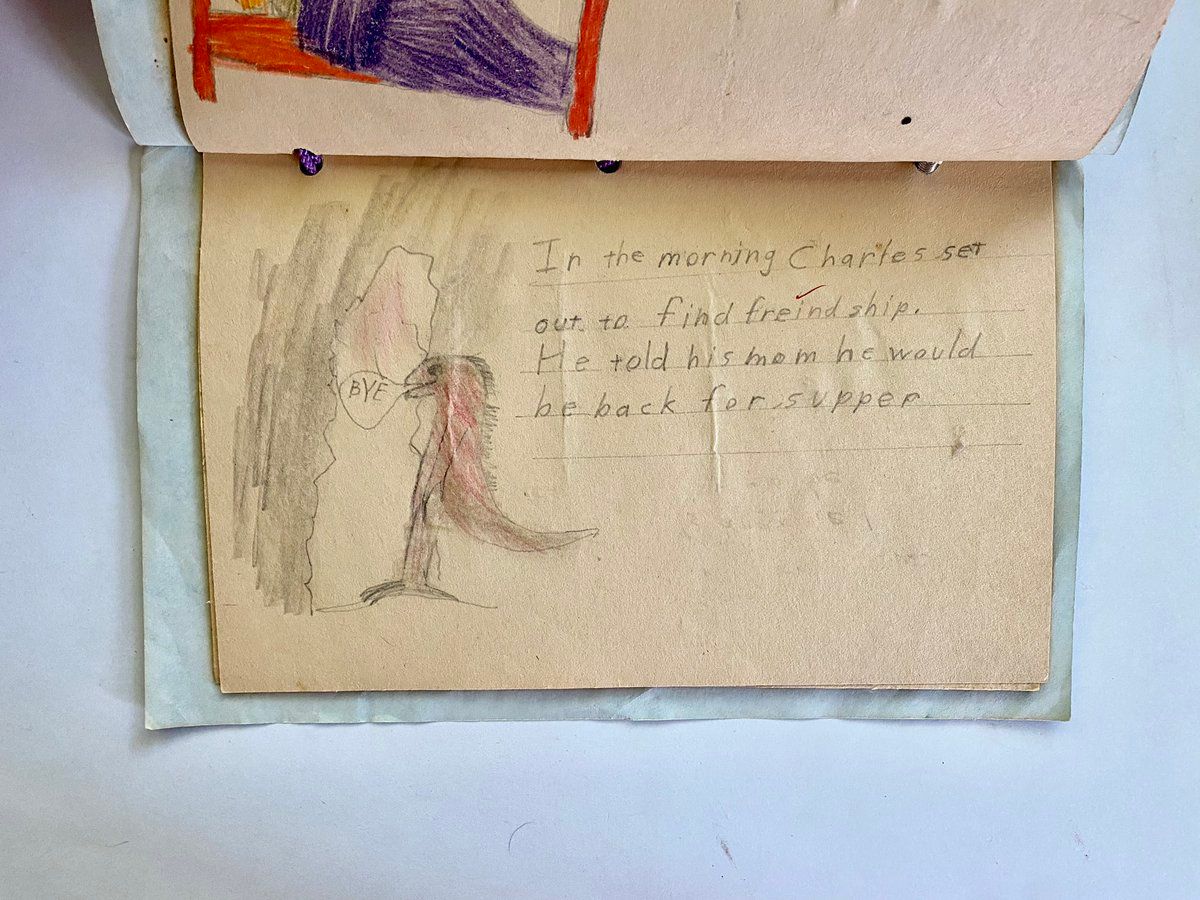 BYE
In the morning Charles set
out to find freindship.
He told his mom he would
be back for supper